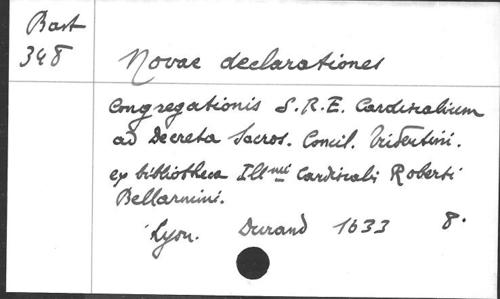 Bast
348
Novae declarationes
Congregationis S. R. E. Cardinalium
ad Decreta Sacros. Concil. Tridentini.
ex bibliotheca Ill mi Cardinalis Roberti
Bellarmini.
Lyon. Durand 1633 8.